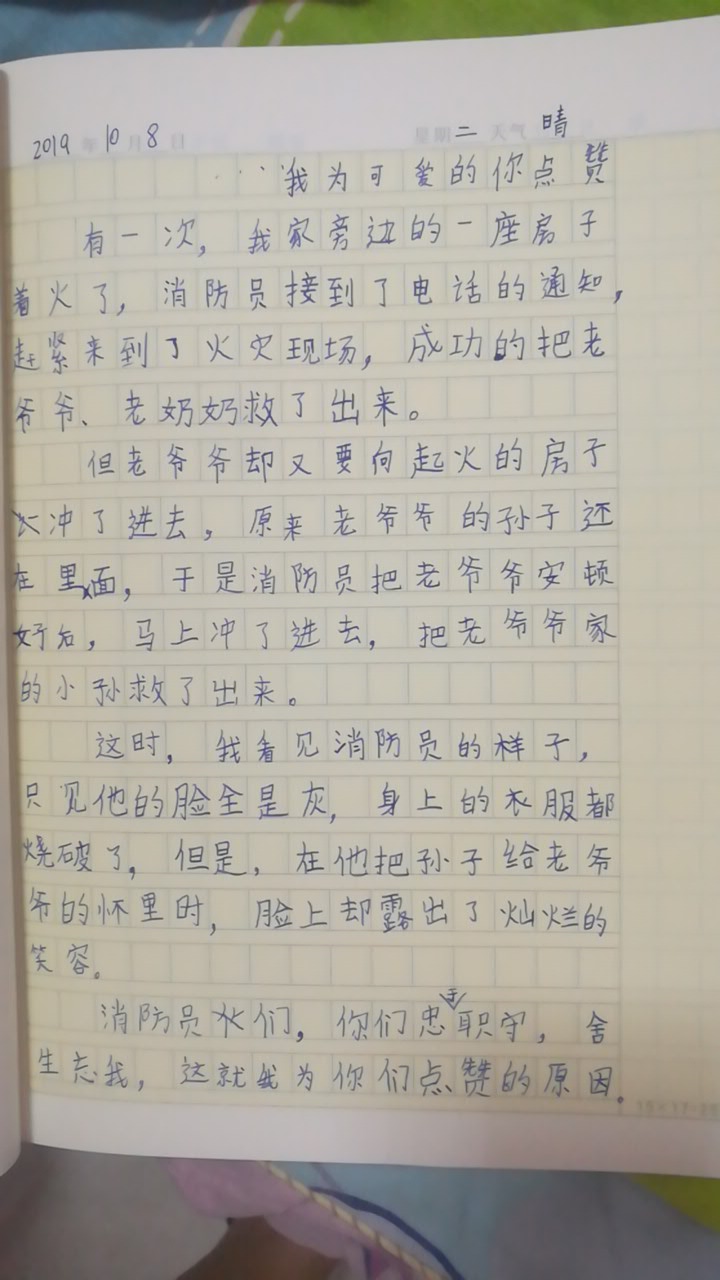 2019年10月8日 星期二 天气晴
我为可爱的你点赞
有一次，我家旁边的一座房子
着火了，消防员接到了电话的通知，
赶紧来到了火灾现场，成功的把老
爷爷、老奶奶救了出来。
但老爷爷却又要向起火的房子
冲了进去，原来老爷爷的孙子还
在里面，于是消防员把老爷爷安顿
好后，马上冲了进去，把老爷爷家
的小孙救了出来。
这时，我看见消防员的样子，
只见他的脸全是灰，身上的衣服都
烧破了，但是，在他把孙子给老爷
爷的怀里时，脸上却露出了灿烂的
笑容。
消防员们，你们忠于职守，舍
生忘我，这就我为你们点赞的原因。